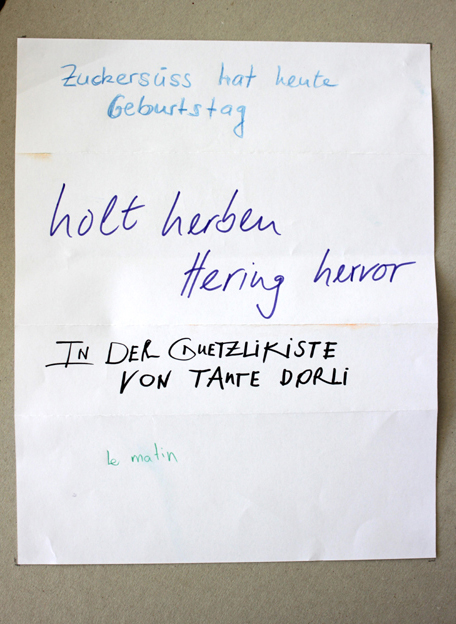 Zuckersüss hat heute
Geburtstag
holt herben
Hering hervor
IN DER GUETZLIKISTE
VON TANTE DORLI
le matin